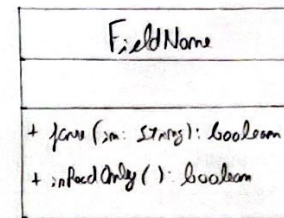 FieldName
+ (in: String): boolean
+ inReadOnly(): boolean